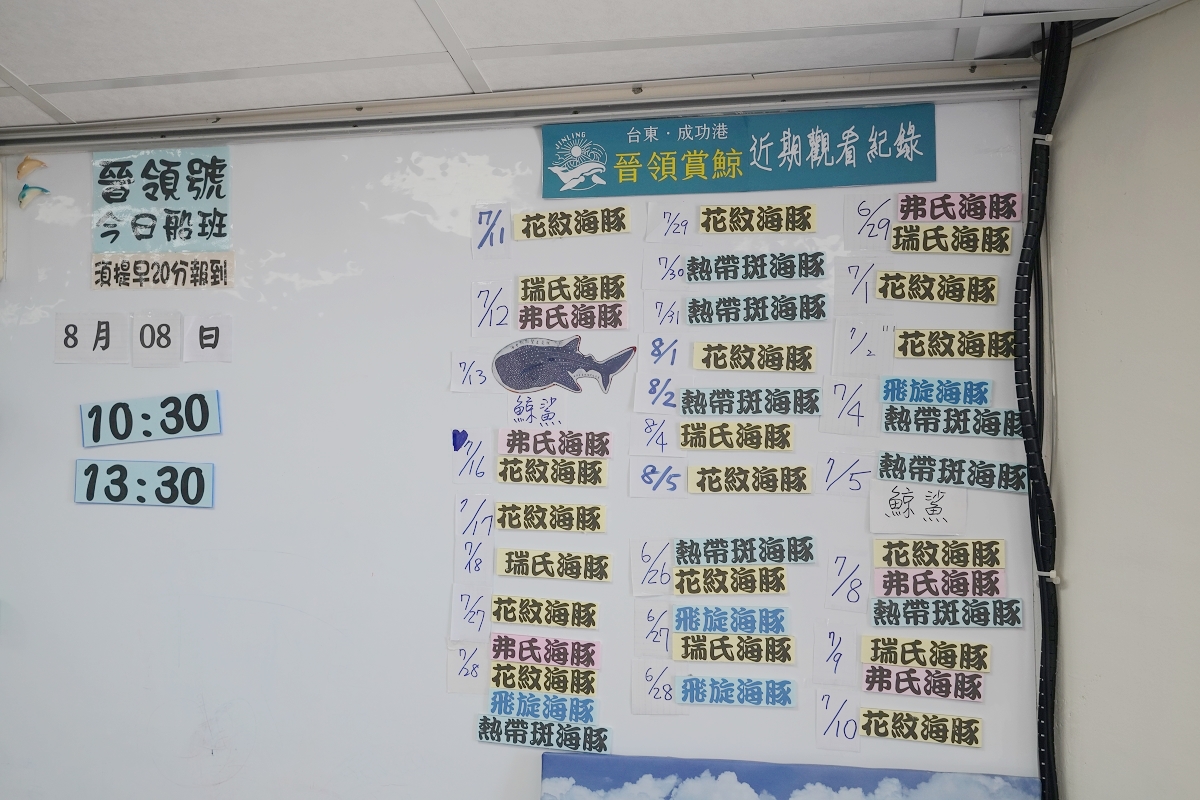 晉領號
今日船班
須提早20分報到
8 月 08 日
10:30
13:30
JINLING
台東·成功港
晉領賞鯨 近期觀看紀錄
7/11 花紋海豚
7/12 瑞氏海豚
弗氏海豚
7/13
鯨鯊
7/16 弗氏海豚
花紋海豚
7/17 花紋海豚
7/18 瑞氏海豚
7/27 花紋海豚
7/28 弗氏海豚
花紋海豚
飛旋海豚
熱帶斑海豚
7/29 花紋海豚
7/30 熱帶斑海豚
7/31 熱帶斑海豚
8/1 花紋海豚
8/2 熱帶斑海豚
8/4 瑞氏海豚
8/5 花紋海豚
6/26 熱帶斑海豚
花紋海豚
6/27 飛旋海豚
瑞氏海豚
6/28 飛旋海豚
6/29 弗氏海豚
瑞氏海豚
7/1 花紋海豚
7/2 花紋海豚
7/4 飛旋海豚
熱帶斑海豚
7/5 熱帶斑海豚
鯨鯊
7/8 花紋海豚
弗氏海豚
熱帶斑海豚
7/9 瑞氏海豚
弗氏海豚
7/10 花紋海豚